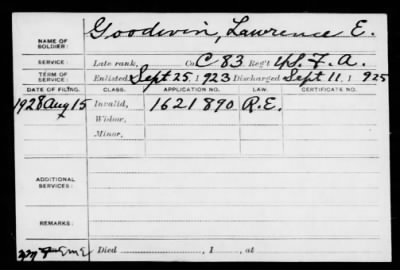 NAME OF SOLDIER: Goodwin, Lawrence E.
SERVICE: Late rank, Co C 83 Reg't U.S.F.A.
TERM OF SERVICE: Enlisted Sept 25, 1923 Discharged Sept 11, 1925
DATE OF FILING. CLASS. APPLICATION NO. LAW. CERTIFICATE NO.
1928 Aug 15 Invalid, 1621890 R.E.
Widow,
Minor,
ADDITIONAL SERVICES:
REMARKS:
EmE Died , 1 , at